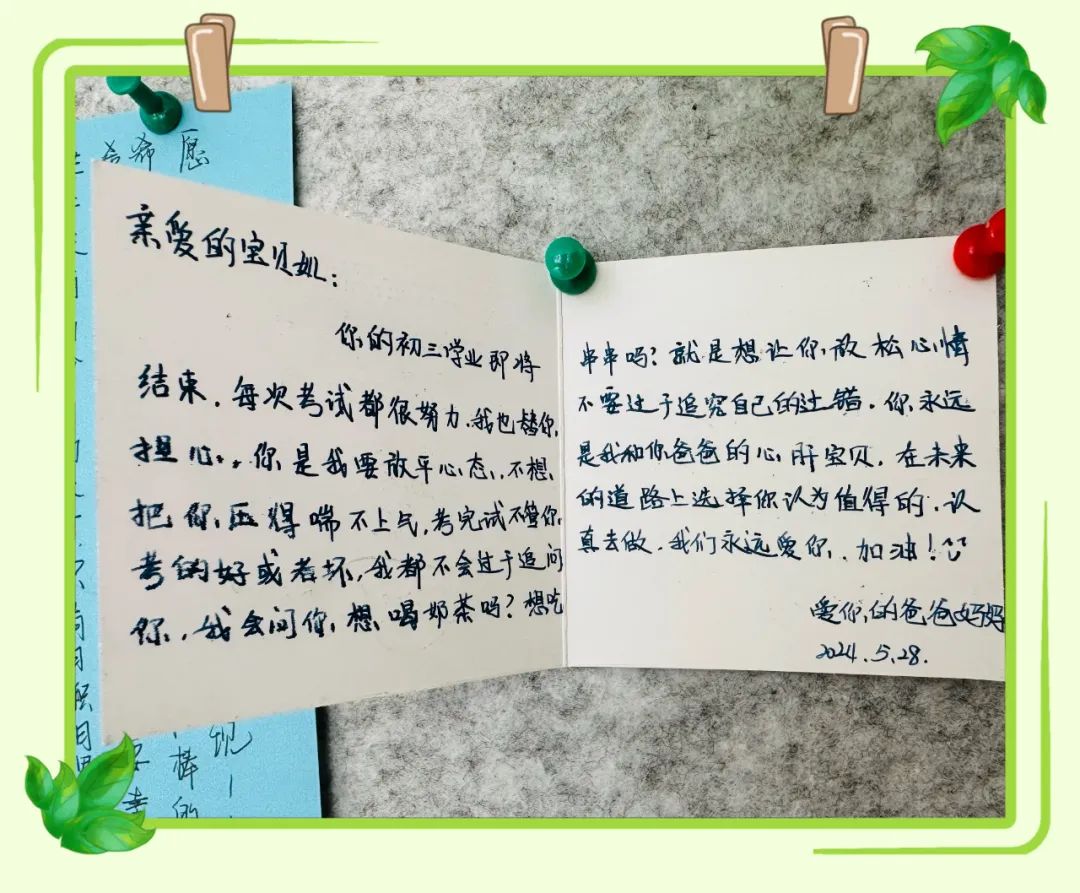 亲爱的宝贝姒：
你的初三学业即将
结束，每次考试都很努力，我也替你
担心，你是我要放平心态，不想
把你压得喘不上气，考完试不管你
考的好或者坏，我都不会过于追问
你，我会问你，想喝奶茶吗？想吃
串串吗？就是想让你放松心情
不要过于追究自己的过错，你永远
是我和你爸爸的心肝宝贝，在未来
的道路上选择你认为值得的，认
真去做，我们永远爱你，加油！
爱你的爸爸妈妈
2024.5.28.
愿
希
现
棒的